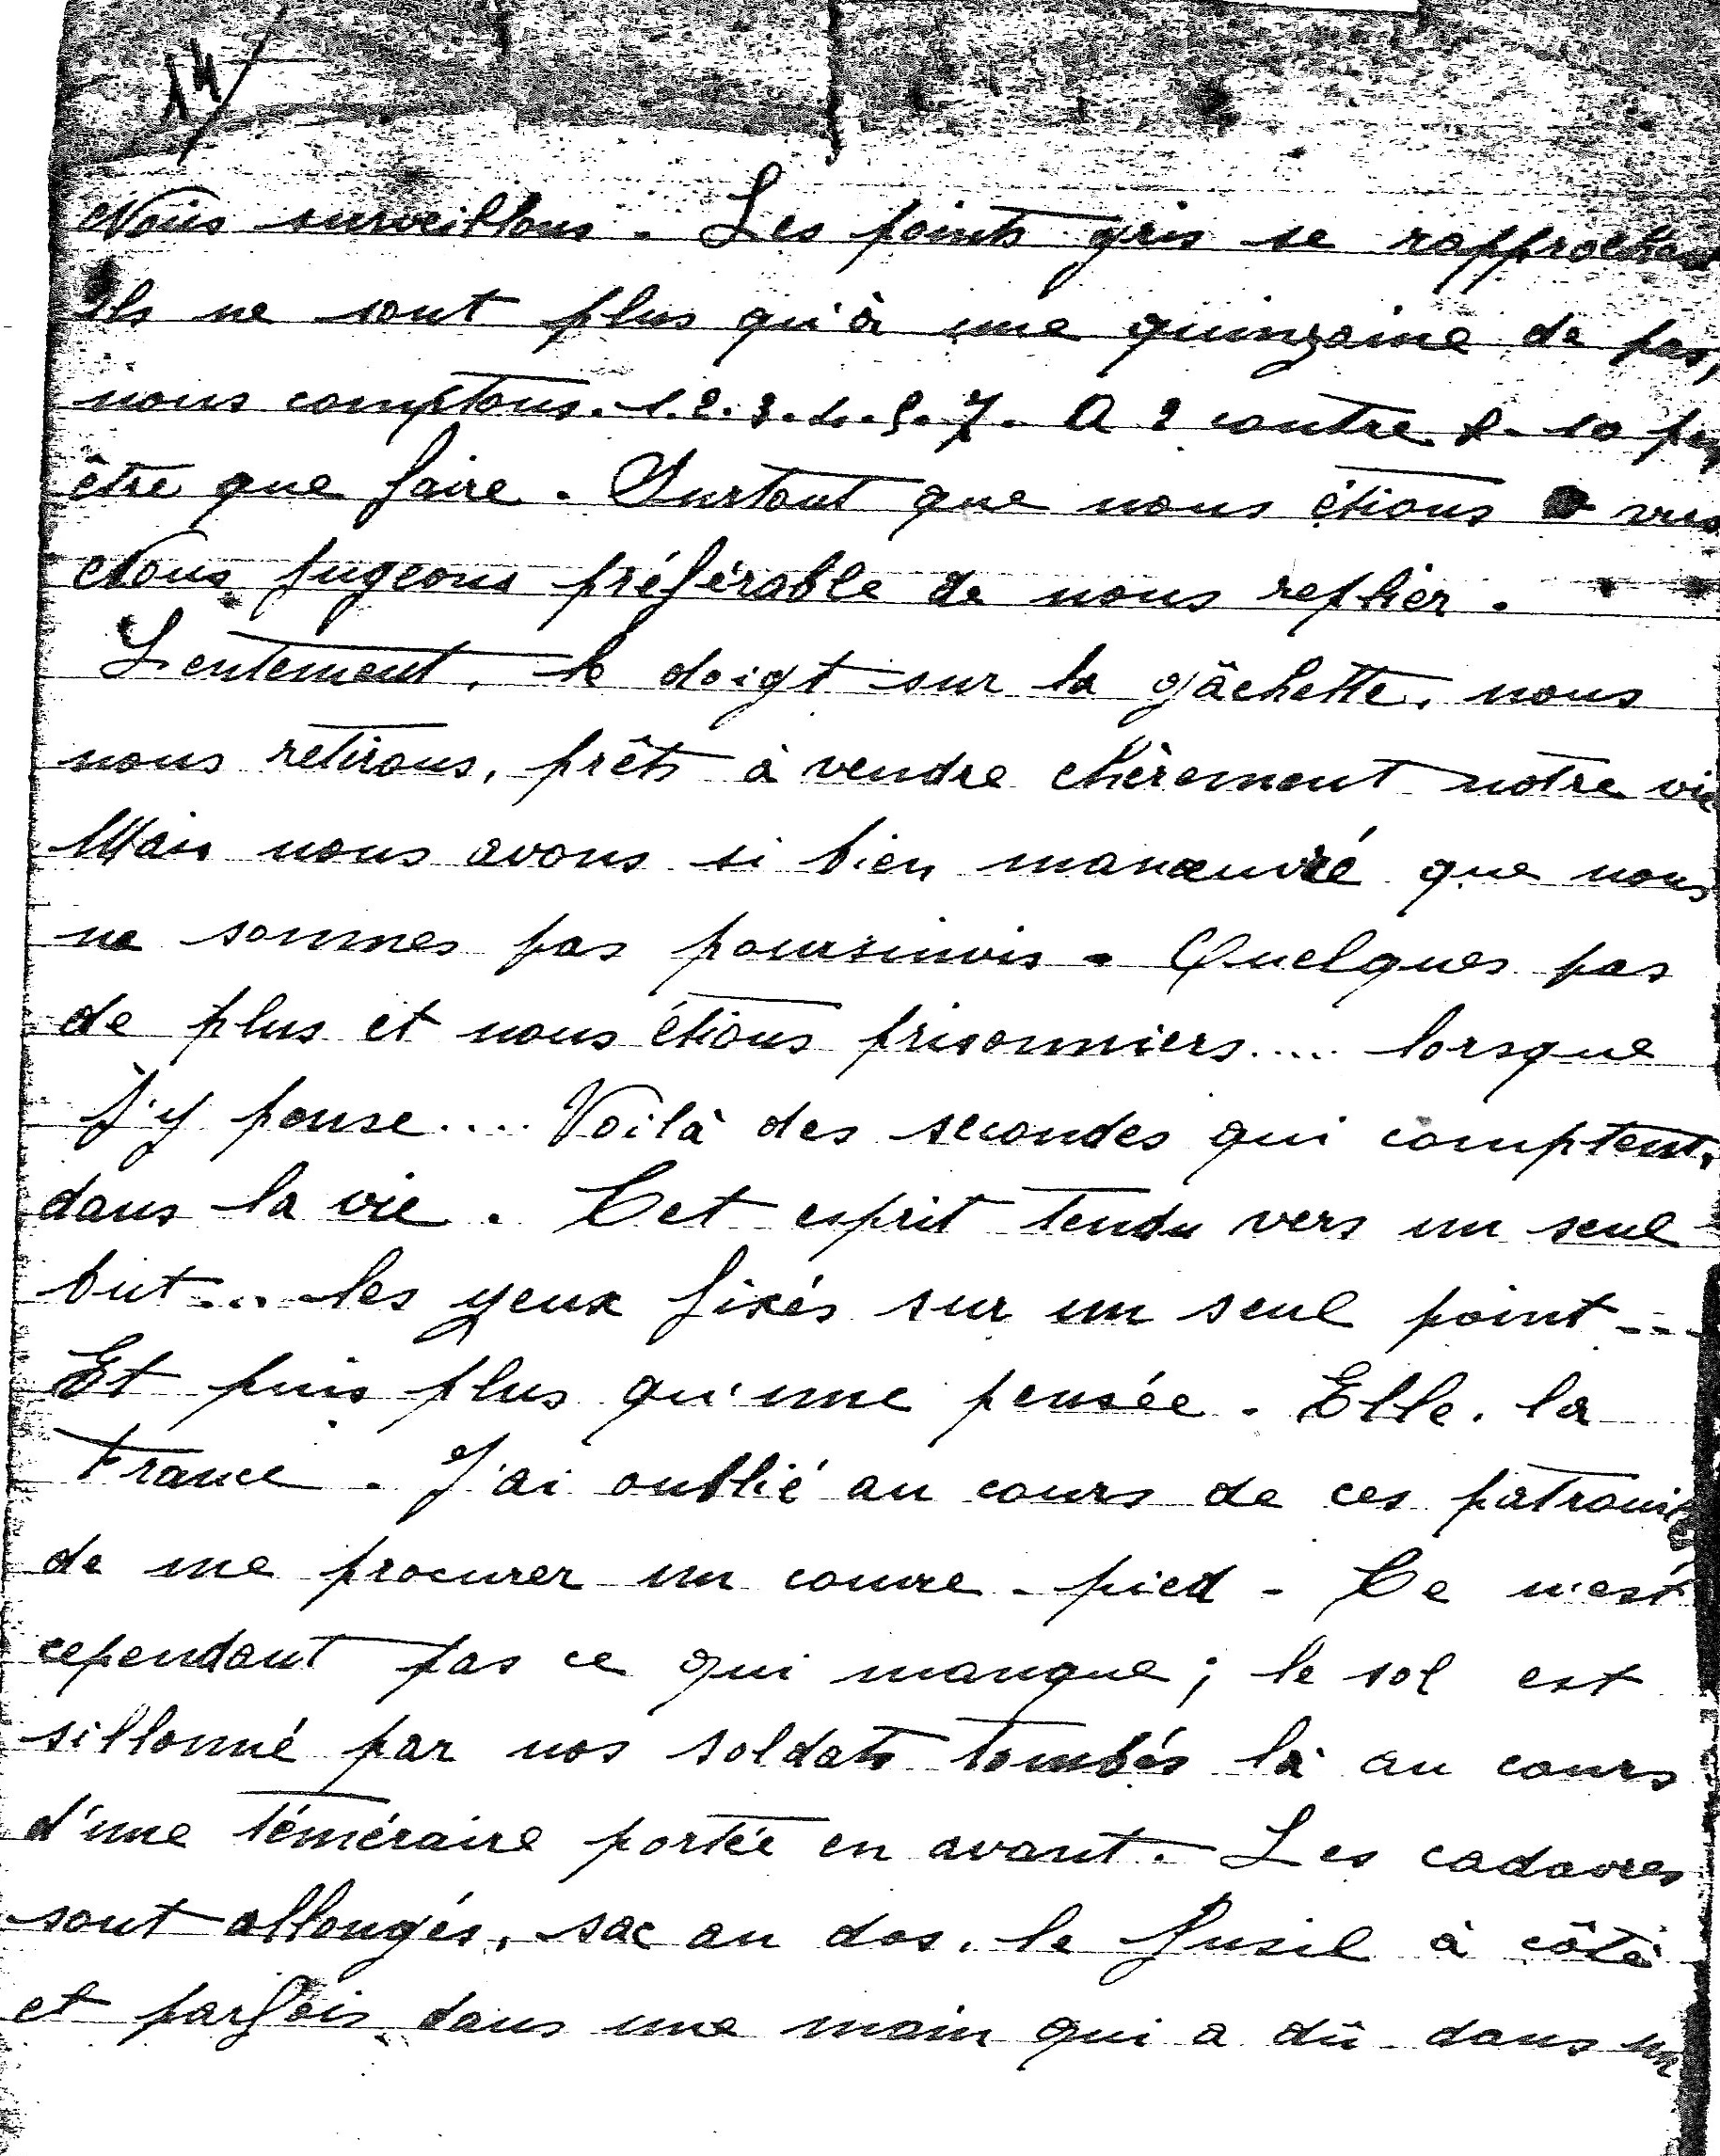 14/
Nous surveillons. Les points gris se rapprochent
ils ne sont plus qu'à une quinzaine de pas,
nous comptons. 1.2.3.4.5.7. A 2 contre 8-10 peut
être que faire. Surtout que nous étions vus
Nous jugeons préférable de nous replier.
Lentement, le doigt sur la gâchette, nous
nous retirons, prêts à vendre chèrement notre vie
Mais nous avons si bien manœuvré que nous
ne sommes pas poursinvis. Quelques pas
de plus et nous étions prisonniers.... lorsque
j'y pense.... Voilà des secondes qui comptent,
dans la vie. Cet esprit tendu vers un seul
but... les yeux fixés sur un seul point...
Et puis plus qu'une pensée. Elle, la
France. J'ai oublié au cours de ces patrouilles
de me procurer un couvre-pied. Ce n'est
cependant pas ce qui manque; le sol est
sillonné par nos soldats tombés là au cours
d'une téméraire portée en avant. Les cadavres
sont allongés, sac au dos, le fusil à côté
et parfois dans une main qui a dû dans un